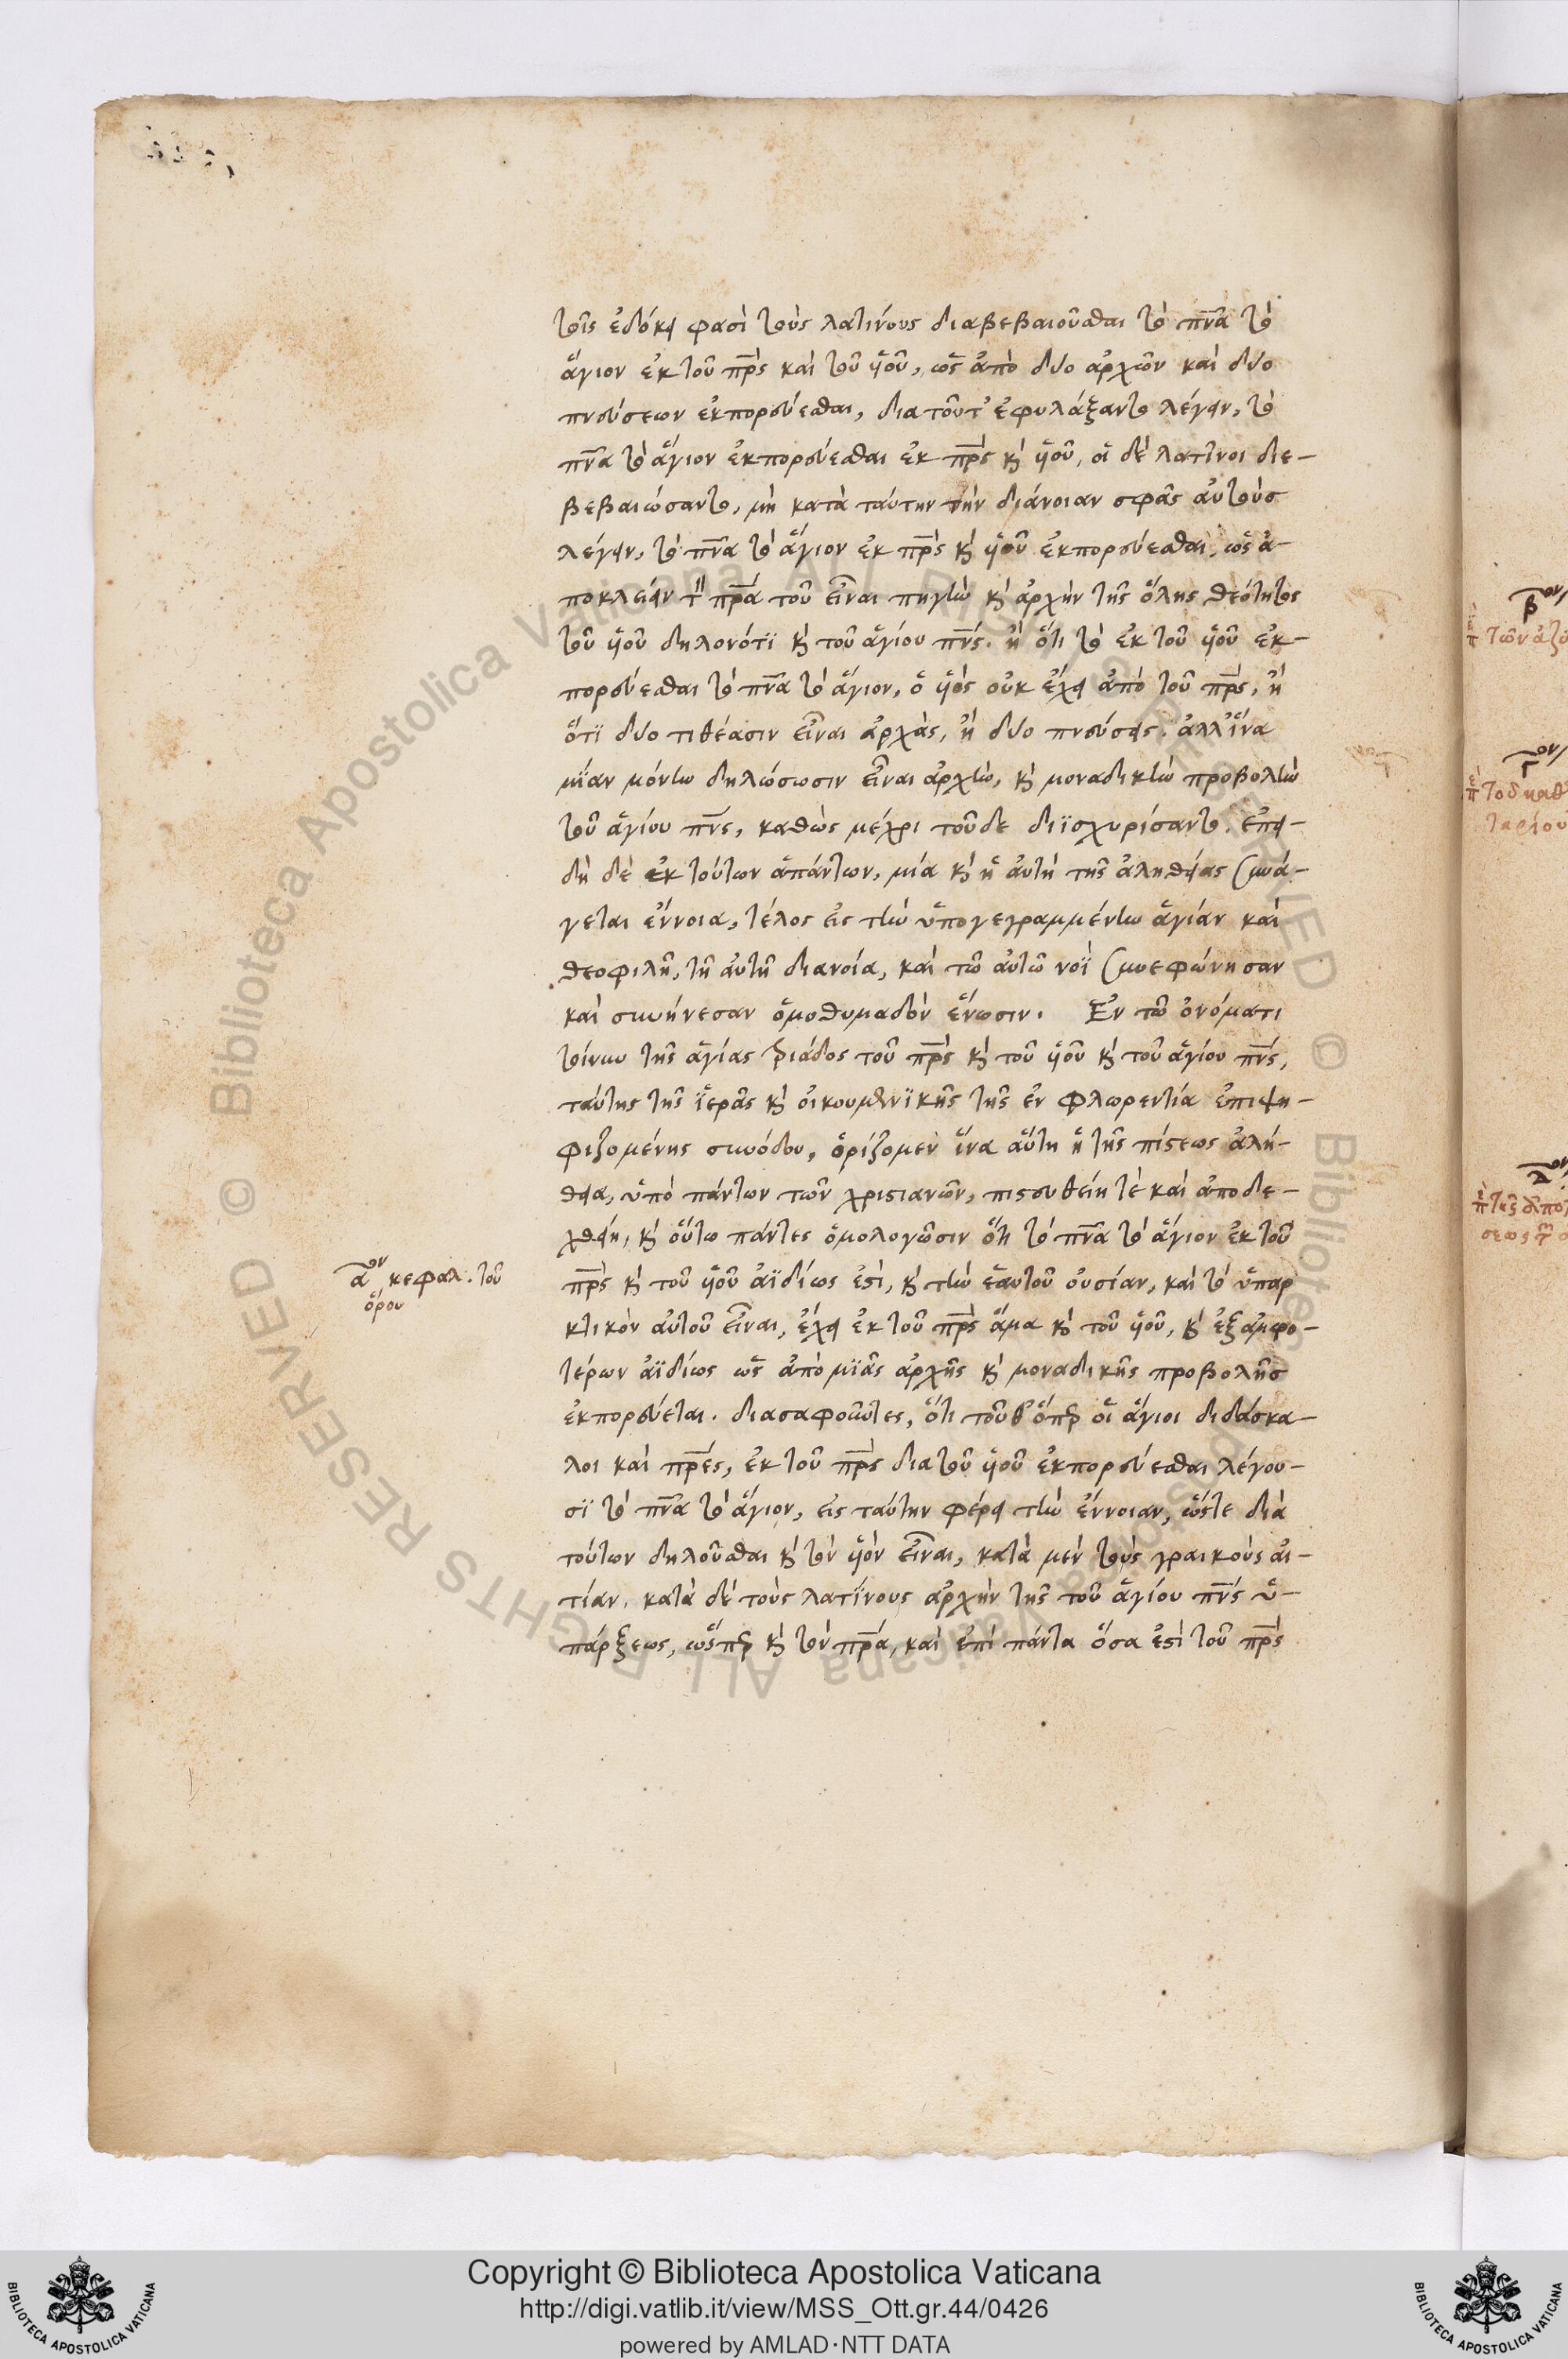 τοῖς ἐδόκει φασὶ τοὺς λατίνους διαβεβαιοῦσθαι τὸ πνα τὸ
ἅγιον ἐκ τοῦ πρς καὶ τοῦ ὑοῦ, ὡς ἀπὸ δύο ἀρχῶν καὶ δύο
πνεύσεων ἐκπορεύεσθαι, διατοῦτ' ἐφυλάξαντο λέγειν, τὸ
πνα τὸ ἅγιον ἐκπορεύεσθαι ἐκ πρς κὶ ὑοῦ, οἱ δὲ λατῖνοι διε-
βεβαιώσαντο, μὴ κατὰ ταύτην τὴν διάνοιαν σφᾶς αὐτοὺσ
λέγειν, τὸ πνα τὸ ἅγιον ἐκ πρς κὶ ὑοῦ ἐκπορεύεσθαι, ὡς ἀ-
ποκλείειν τ̀ πρα τοῦ εἶναι πηγὴν κὶ ἀρχὴν τῆς ὅλης θεότητος
τοῦ ὑοῦ δηλονότϊ κὶ τοῦ ἁγίου πνς. ἢ ὅτι τὸ ἐκ τοῦ ὑοῦ ἐκ-
πορεύεσθαι τὸ πνα τὸ ἅγιον, ὁ ὑὸς οὐκ ἔχει ἀπὸ τοῦ πρς, ἢ
ὅτϊ δύο τιθέασιν εἶναι ἀρχὰς, ἢ δύο πνεύσεις. ἀλλ' ἵνα
μίαν μόνην δηλώσωσιν εἶναι ἀρχὴν, κὶ μοναδικὴν προβολὴν
τοῦ ἁγίου πνς, καθὼς μέχρι τοῦδε διϊσχυρίσαντο. ἐπει-
δὴ δὲ ἐκ τούτων ἁπάντων, μία κὶ ἡ αὐτὴ τῆς ἀληθείας συνά-
γεται ἔννοια, τέλος εἰς τὴν ὑπογεγραμμένην ἁγίαν καὶ
θεοφιλῆ, τῆ αὐτῆ διανοία, καὶ τῶ αὐτῶ νοῒ συνεφώνησαν
καὶ συνήνεσαν ὁμοθυμαδὸν ἕνωσιν. Ἐν τῶ ὀνόματι
τοίνυν τῆς ἁγίας τριάδος τοῦ πρς κὶ τοῦ ὑοῦ κὶ τοῦ ἁγίου πνς,
ταύτης τῆς ἱερᾶς κὶ οἰκουμενϊκῆς τῆς ἐν φλωρεντία ἐπιψη-
φιζομένης συνόδου, ὁρίζομεν ἵνα αὕτη ἡ τῆς πίστεως ἀλή-
θεια, ὑπὸ πάντων τῶν χριστιανῶν, πιστευθείη τὲ καὶ ἀποδε-
χθείη, κὶ οὕτω πάντες ὁμολογῶσιν ὅτι τὸ πνα τὸ ἅγιον ἐκ τοῦ
αον κεφαλ. τοῦ
ὅρου
πρς κὶ τοῦ ὑοῦ ἀϊδίως ἐστὶ, κὶ τὴν ἑαυτοῦ οὐσίαν, καὶ τὸ ὑπαρ
κτικὸν αὐτοῦ εἶναι, ἔχει ἐκ τοῦ πρς ἅμα κὶ τοῦ ὑοῦ, κὶ ἐξ ἀμφο-
τέρων ἀϊδίως ὡς ἀπὸ μϊᾶς ἀρχῆς κὶ μοναδικῆς προβολῆσ
ἐκπορεύεται. διασαφοῦντες, ὅτι τοῦθ' ὅπερ οἱ ἅγιοι διδάσκα-
λοι καὶ πρες, ἐκ τοῦ πρς διὰ τοῦ ὑοῦ ἐκπορεύεσθαι λέγου-
σϊ τὸ πνα τὸ ἅγιον, εἰς ταύτην φέρει τὴν ἔννοιαν, ὥστε διὰ
τούτων δηλοῦσθαι κὶ τὸν ὑὸν εἶναι, κατὰ μὲν τοὺς γραικοὺς αἰ-
τίαν, κατὰ δὲ τοὺς λατίνους ἀρχὴν τῆς τοῦ ἁγίου πνς ὑ-
πάρξεως, ὥσπερ κὶ τὸν πρα, καὶ ἐπὶ πάντα ὅσα ἐστὶ τοῦ πρς
βον
Γον
Copyright © Biblioteca Apostolica Vaticana
http://digi.vatlib.it/view/MSS_Ott.gr.44/0426
powered by AMLAD·NTT DATA